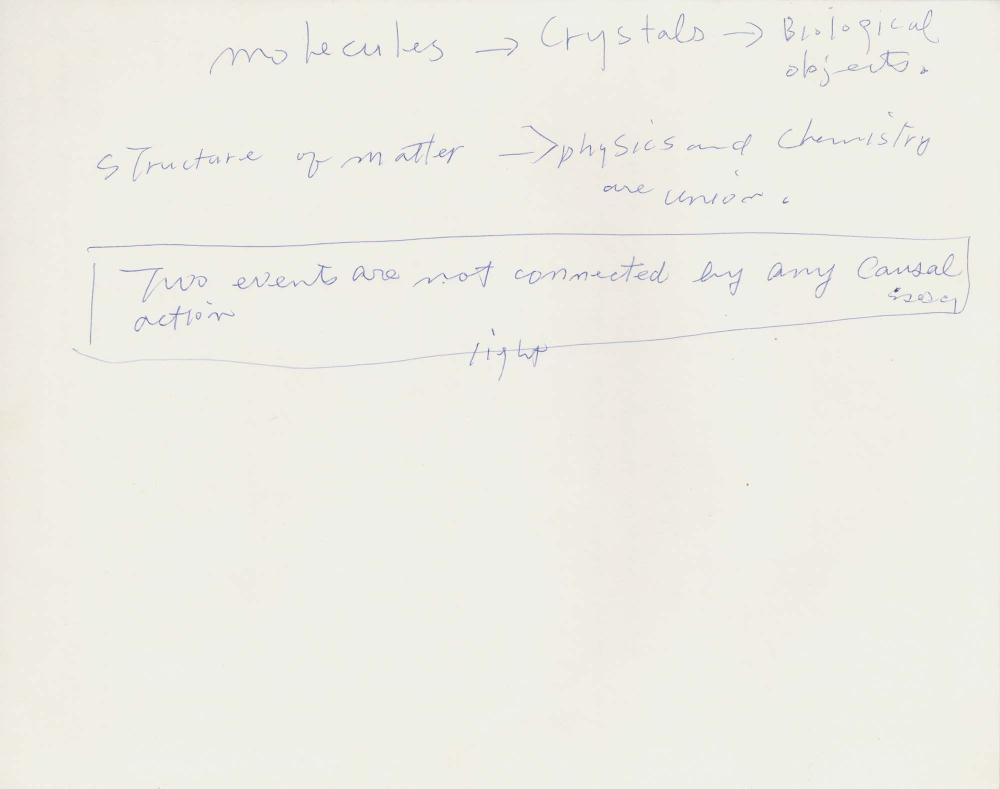 molecules → Crystals → Biological
objects.
Structure of matter → physics and Chemistry
are union.
Two events are not connected by any Causal
action
light